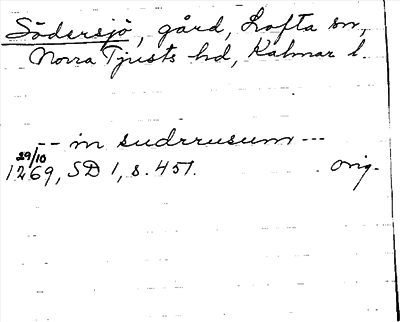 Södersjö, gård, Lofta sn,
Norra Tjusts hd, Kalmar l.
-- in sudrrusum ---
29/10
1269, SD 1, s. 451. orig.